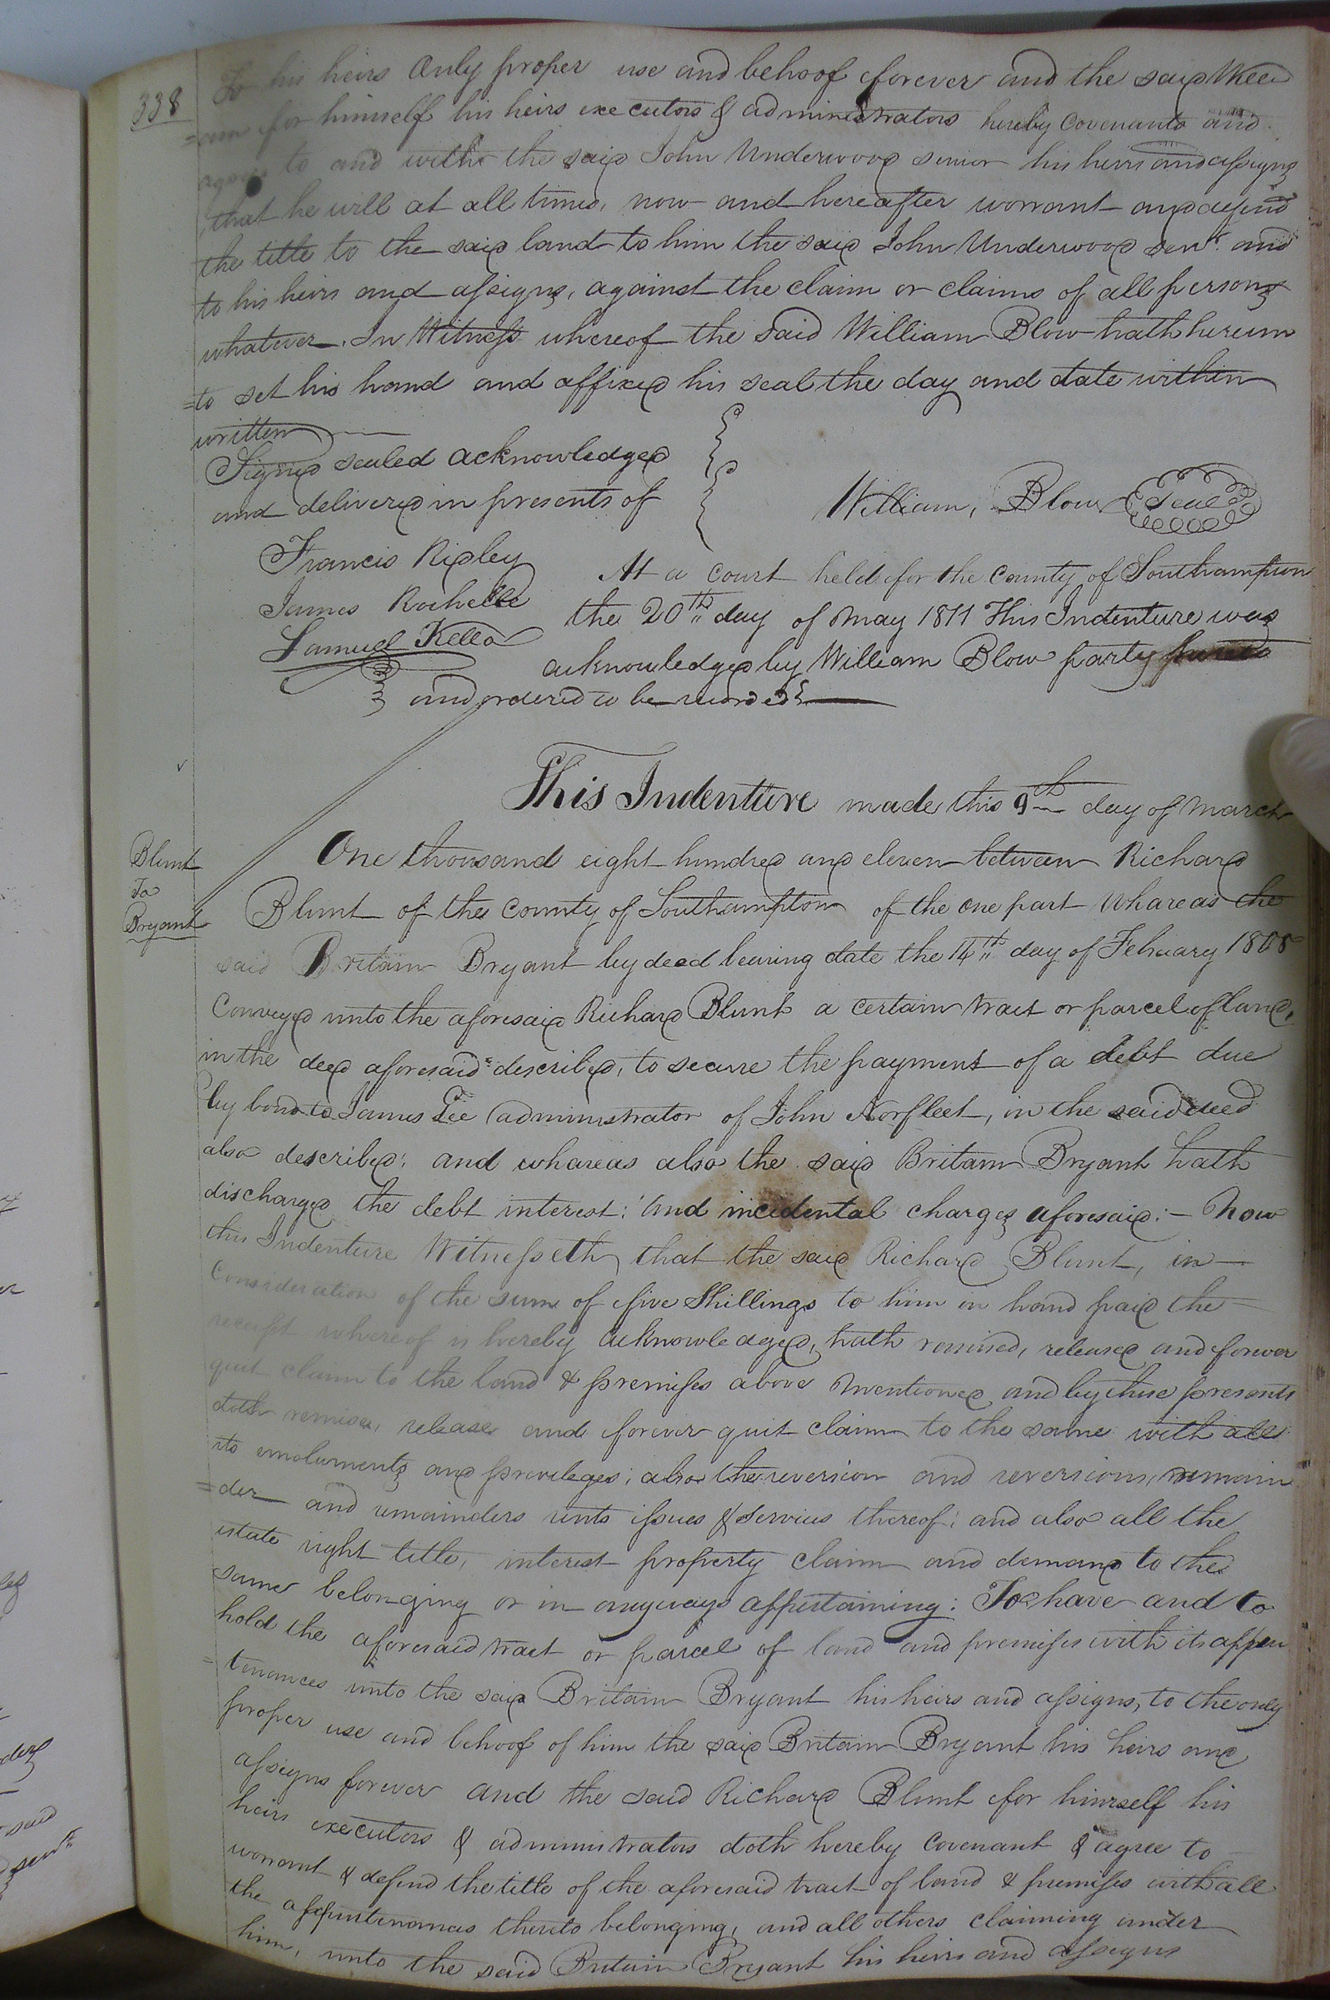 338
To his heirs Only proper use and behoof forever and the said Will
=iam for himself his heirs executors & administrators hereby Covenants and
agree to and with the said John Underwood senior his heirs and assigns
that he will at all times, now and hereafter warrant and defend
the title to the said land to him the said John Underwood senr. and
to his heirs and assigns, against the claim or claims of all persons
whatever. In Witness whereof the said William Blow hath hereun
=to set his hand and affixed his seal the day and date within
written
Signed sealed acknowledged
and delivered in presents of
William, Blow Seal
Francis Ridley
James Rochelle
Samuel Kello
At a court held for the County of Southampton
the 20th day of May 1811 This Indenture was
acknowledged by William Blow party
and ordered to be recorded
This Indenture made this 9th day of March
Blunt
To
Bryant
One thousand eight hundred and eleven between Richard
Blunt of the County of Southampton of the one part Whareas the
said Britain Bryant by deed bearing date the 14th day of February 1808
Conveyed unto the aforesaid Richard Blunt a certain tract or parcel of land,
in the deed aforesaid described, to secure the payment of a debt due
by bond to James Lee administrator of John Norfleet, in the said deed
also described; and whareas also the said Britain Bryant hath
discharged the debt interest: and incidental charges aforesaid:- Now
this Indenture Witnesseth that the said Richard Blunt, in
Consideration of the sum of five Shillings to him in hand paid the
receipt whereof is hereby acknowledged, hath remised, released and forever
quit claim to the land & premises above mentioned and by these presents
doth remise, release and forever quit claim to the same with all
its emoluments and privileges; also the reversion and reversions, remain
=der and remainders rents issues & services thereof; and also all the
estate right title, interest property claim and demand to the
same belonging or in anyways appertaining: To have and to
hold the aforesaid tract or parcel of land and premises with its appur
=tenances unto the said Britain Bryant his heirs and assigns, to the only
proper use and behoof of him the said Britain Bryant his heirs and
assigns forever and the said Richard Blunt for himself his
heirs executors & administrators doth hereby Covenant & agree to
warrant & defend the title of the aforesaid tract of land & premises with all
the appurtenances thereto belonging, and all others claiming under
him, unto the said Britain Bryant his heirs and assigns